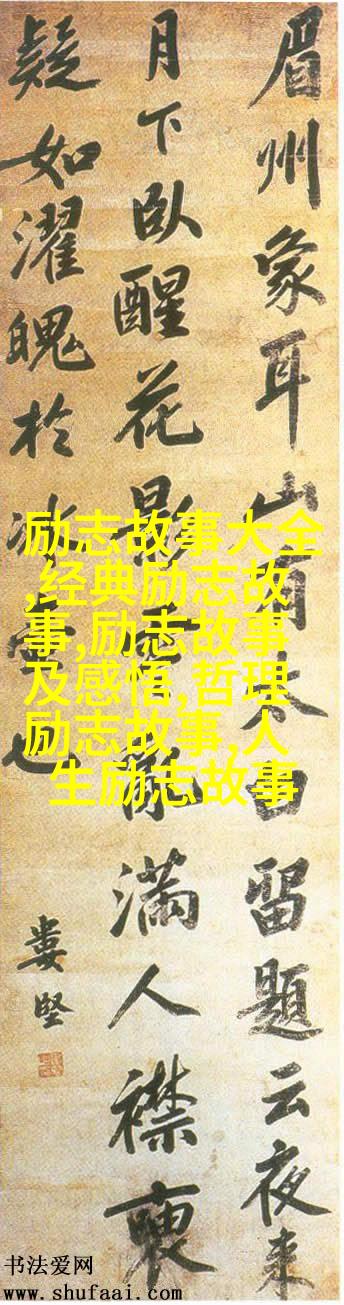 眉州象耳山有太白留題云夜來
月下臥醒花影亂滿人襟
疑如濯魄於冰也
婁堅
励志故事大全
,经典励志故
事,励志故事
及感悟,哲理
励志故事,人
生励志故事
书法爱网
www.shufaai.com